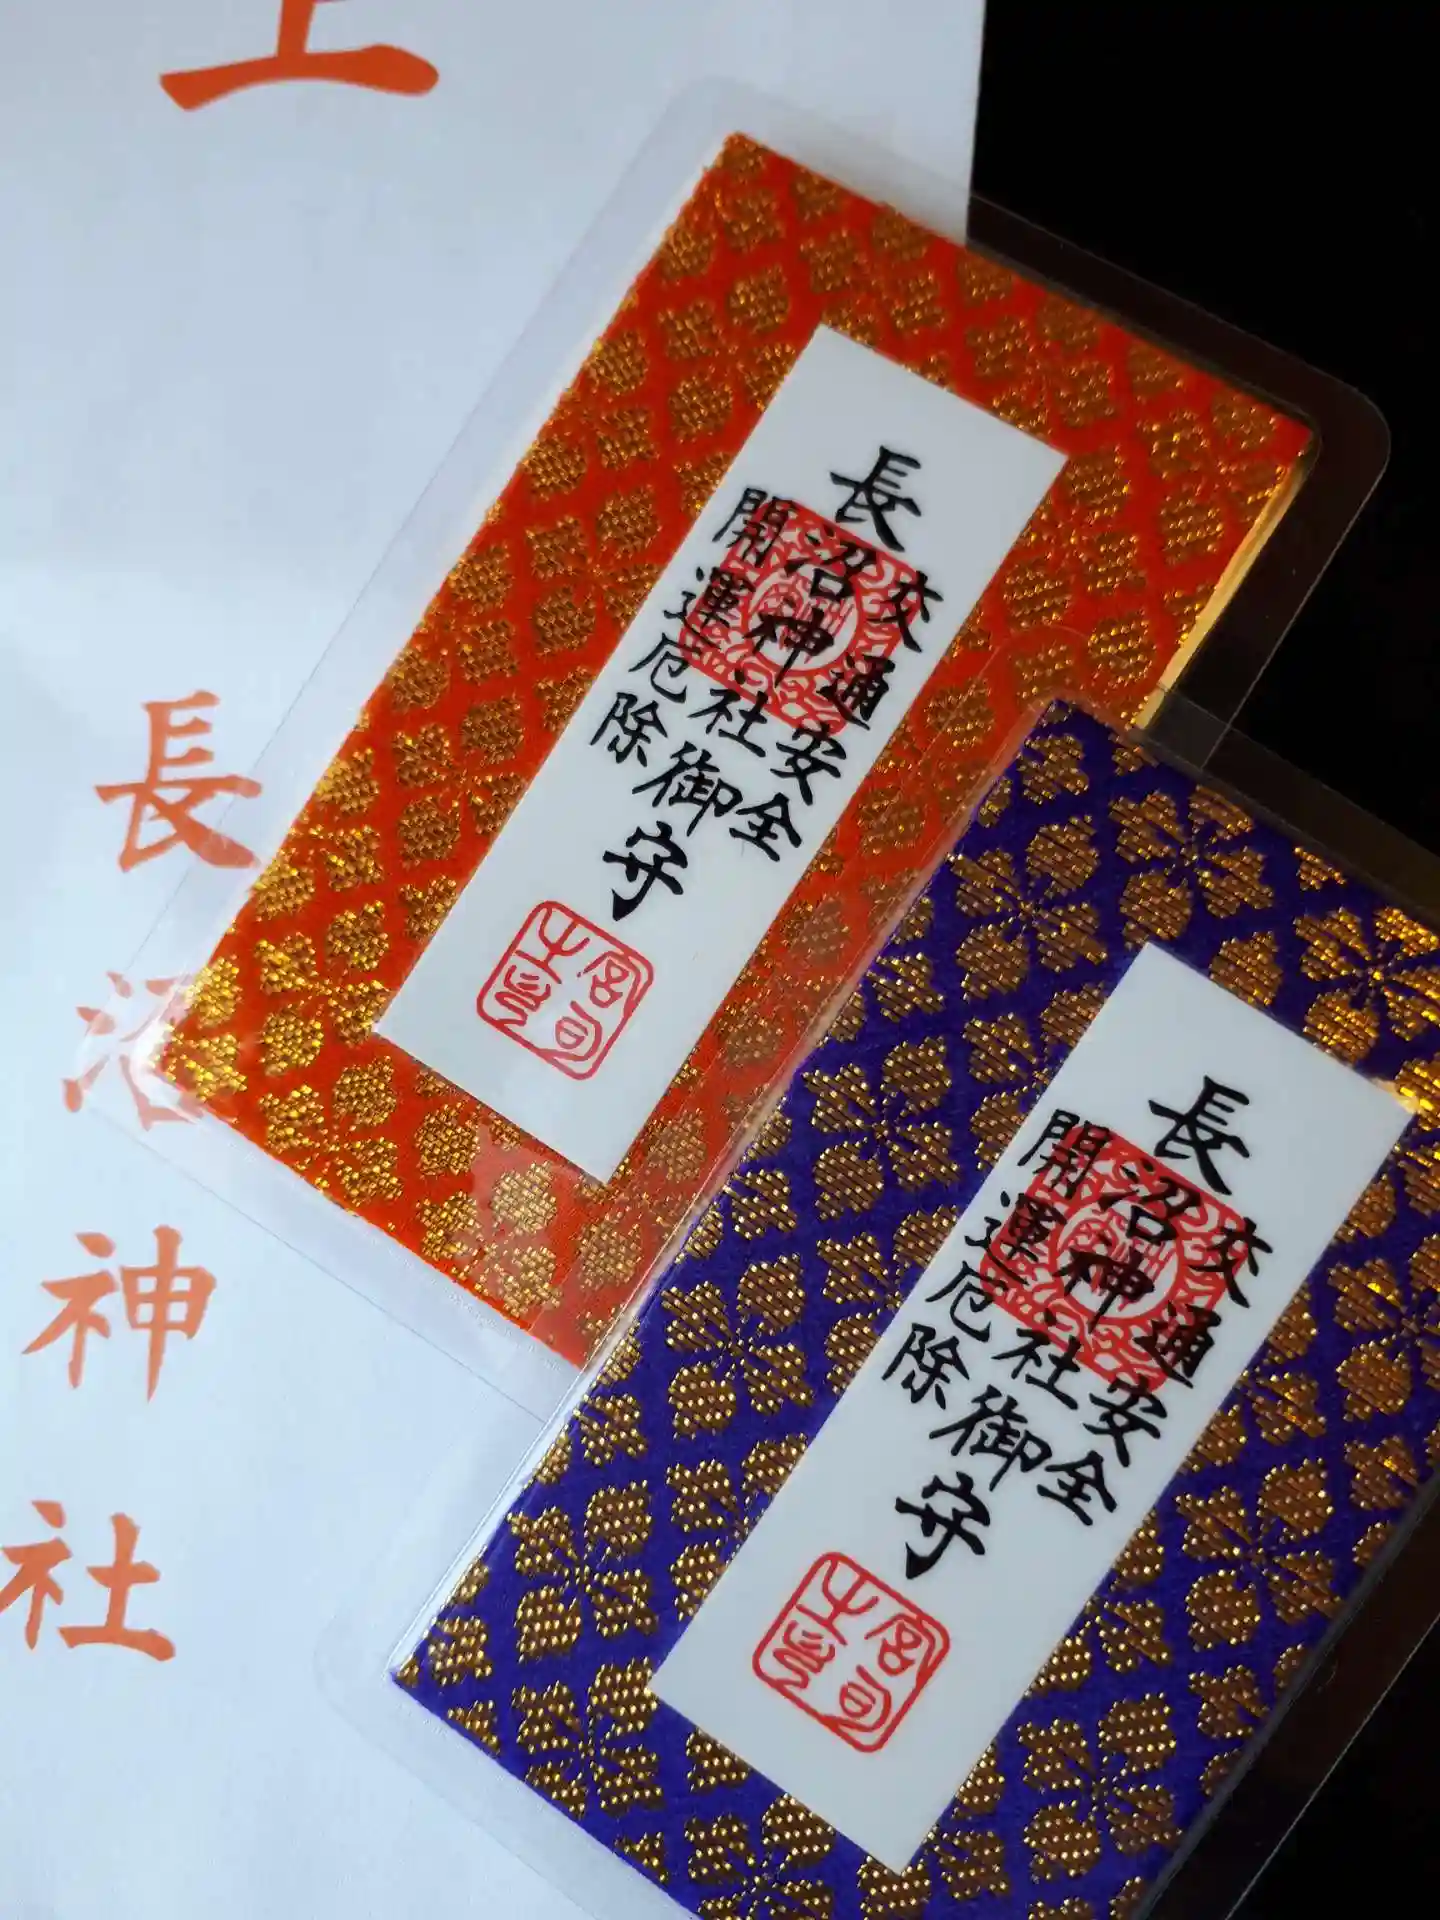 上
長沼神社
長沼神社御守
交通安全
開運厄除
宮司之印
長沼神社御守
交通安全
開運厄除
宮司之印